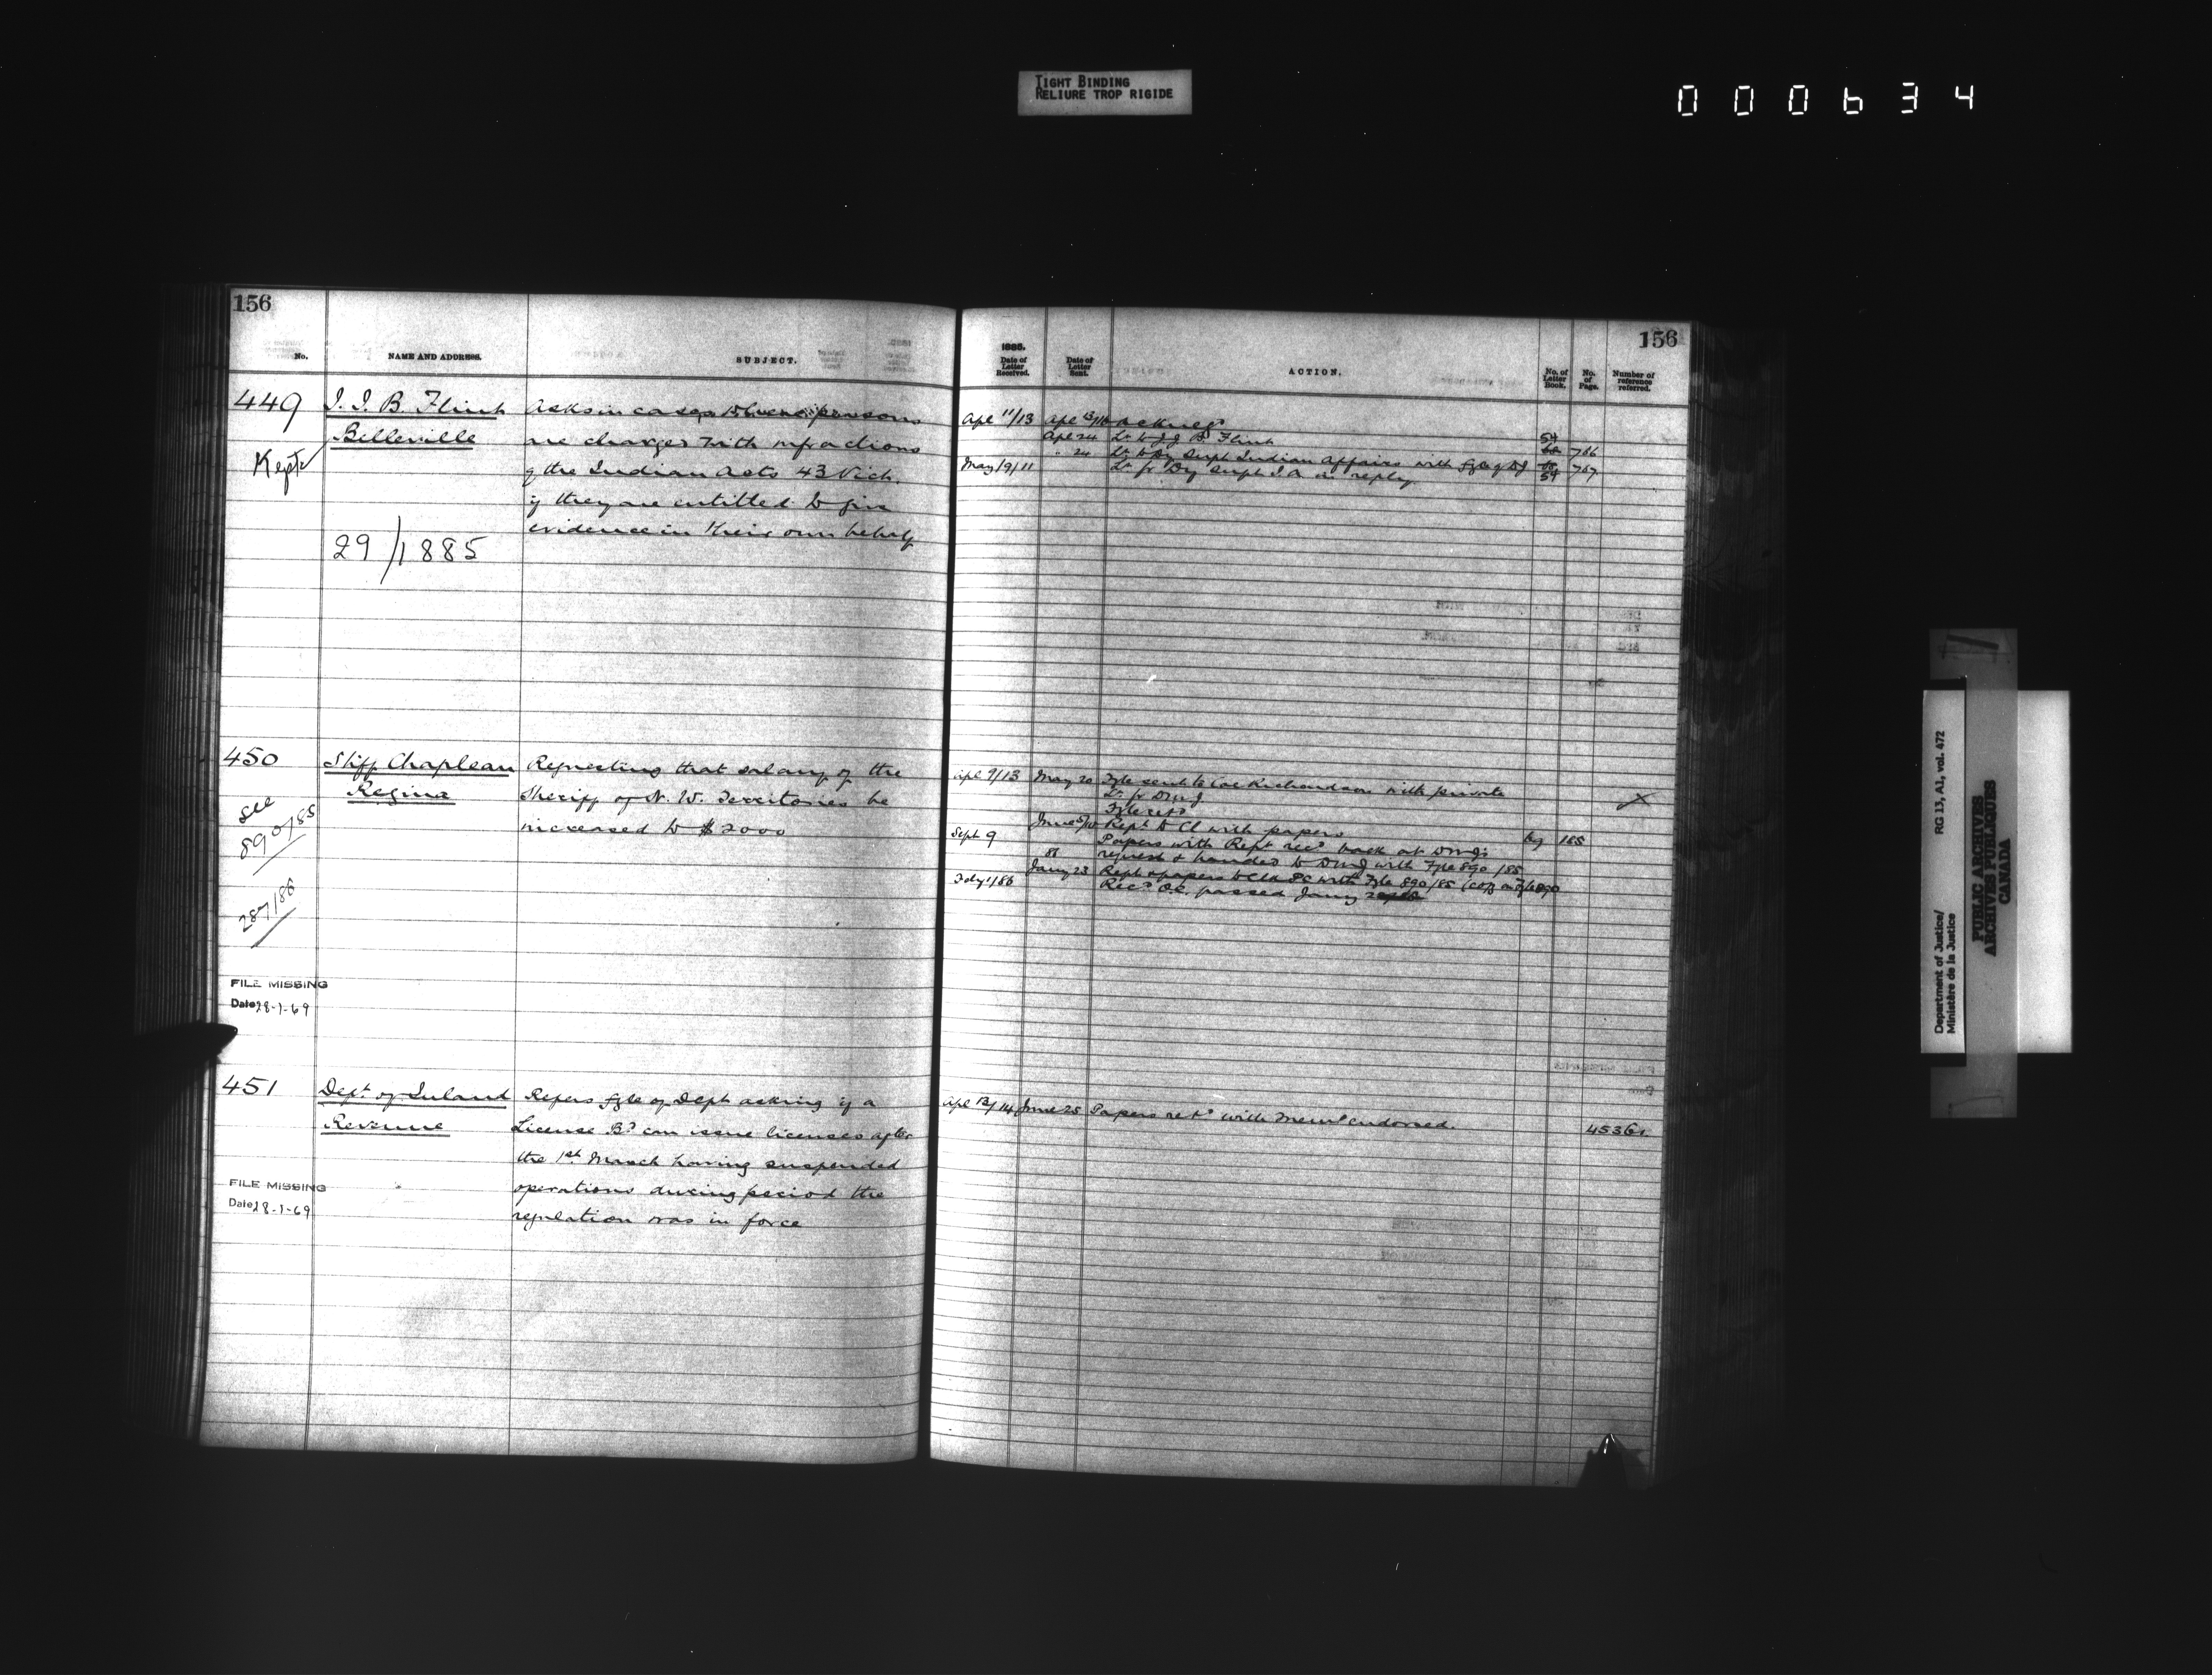 TIGHT BINDING
RELIURE TROP RIGIDE
000634
156
No. NAME AND ADDRESS. SUBJECT.
449 J. J. B. Flint Asks in cases where persons
Belleville are charged with infractions
Kept of the Indian Acts 43 Vich.
if they are entitled to give
evidence in their own behalf
29/1885
450 Sheriff Chapleau Requesting that salary of the
Regina Sheriff of N. W. Territories be
increased to $2000
see
890/85
287/86
FILE MISSING
Date 28-1-69
451 Dept. of Inland Refers fyle of Dept asking if a
Revenue License Bd can issue licenses after
the 1st March having suspended
operations during period the
regulation was in force
FILE MISSING
Date 28-1-69
156
1885.
Date of Letter Received. Date of Letter Sent. ACTION. No. of Letter Book. No. of Page. Number of reference referred.
Apl 11/13 Apl 13/16 Acknegd
Apl 24 Lr to J. J. B. Flint 54 766
" 24 Lr to Dy Supt Indian Affairs with fyle of DJ 54 767
May 9/11 Lr fr Dy Supt I.A. in reply
Apl 9/13 May 20 Fyle sent to Col Richardson with private
Lr fr DMJ
Fyle retd
June 5/10 Rept to Cl with papers 185
Sept 9 Papers with Rept recd back at DMJs
request & handed to DMJ with Fyle 890/85
86
Jany 23 Rept & papers to Clk P.C. with Fyle 890/85 (copy on Fyle 890
Feby 1/86 Recd O.C. passed Jany
Apl 13/14 June 25 Papers retd with Memo endorsed. 45361.
Department of Justice/
Ministère de la Justice
RG 13, A1, vol. 472
PUBLIC ARCHIVES
ARCHIVES PUBLIQUES
CANADA